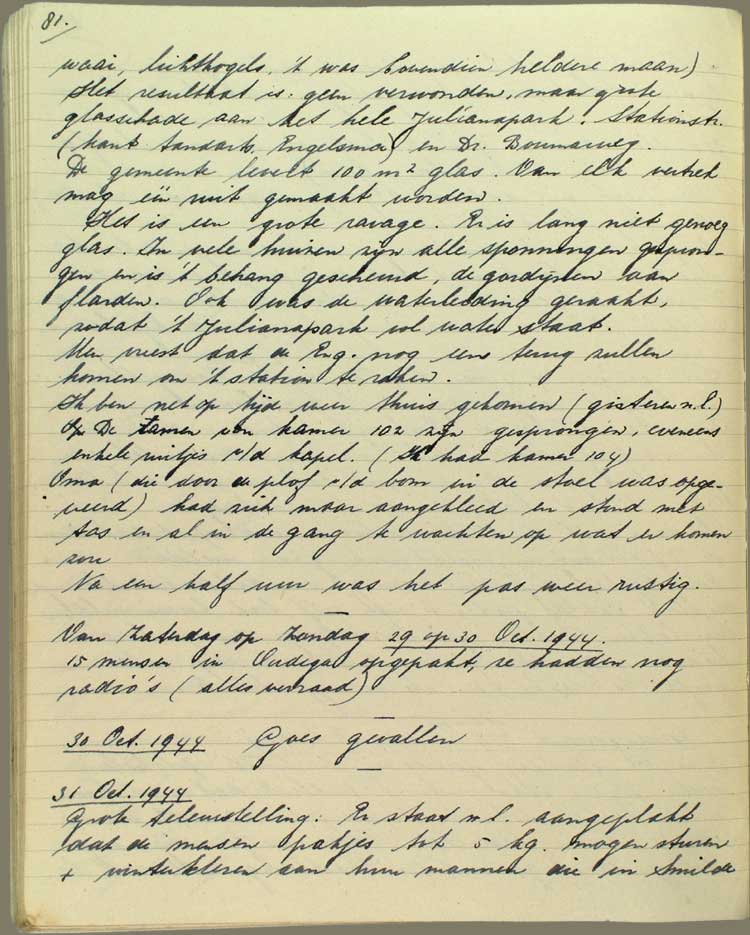 81.
waai, lichtkogels, 't was bovendien heldere maan)
Het resultaat is: geen verwonden, maar grote
glasschade aan het hele Julianapark, Stationstr.
(kant tandarts Engelsma) en Dr. Boumaweg.
De gemeente levert 100 m² glas. Van elk vertrek
mag één ruit gemaakt worden.
Het is een grote ravage. Er is lang niet genoeg
glas. In vele huizen zijn alle sponningen gespron-
gen en is 't behang gescheurd, de gordijnen aan
flarden. Ook was de waterleiding geraakt,
zodat 't Julianapark vol water staat.
Men vreest dat de Eng. nog eens terug zullen
komen om 't station te raken.
Ik ben net op tijd weer thuis gekomen (gisteren n.l.)
De ramen van kamer 102 zijn gesprongen, eveneens
enkele ruitjes v/d kapel. (Ik had kamer 104)
Oma (die door de plof v/d bom in de stoel was opge-
veerd) had zich maar aangekleed en stond met
tas en al in de gang te wachten op wat er komen
zou
Na een half uur was het pas weer rustig.
Van Zaterdag op Zondag 29 op 30 Oct. 1944.
15 mensen in Oudega opgepakt, ze hadden nog
radio's (alles verraad)
30 Oct. 1944 Goes gevallen
31 Oct. 1944
Grote teleurstelling: Er staat n.l. aangeplakt
dat de mensen pakjes tot 5 kg. mogen sturen
+ winterkleren aan hun mannen die in Smilde